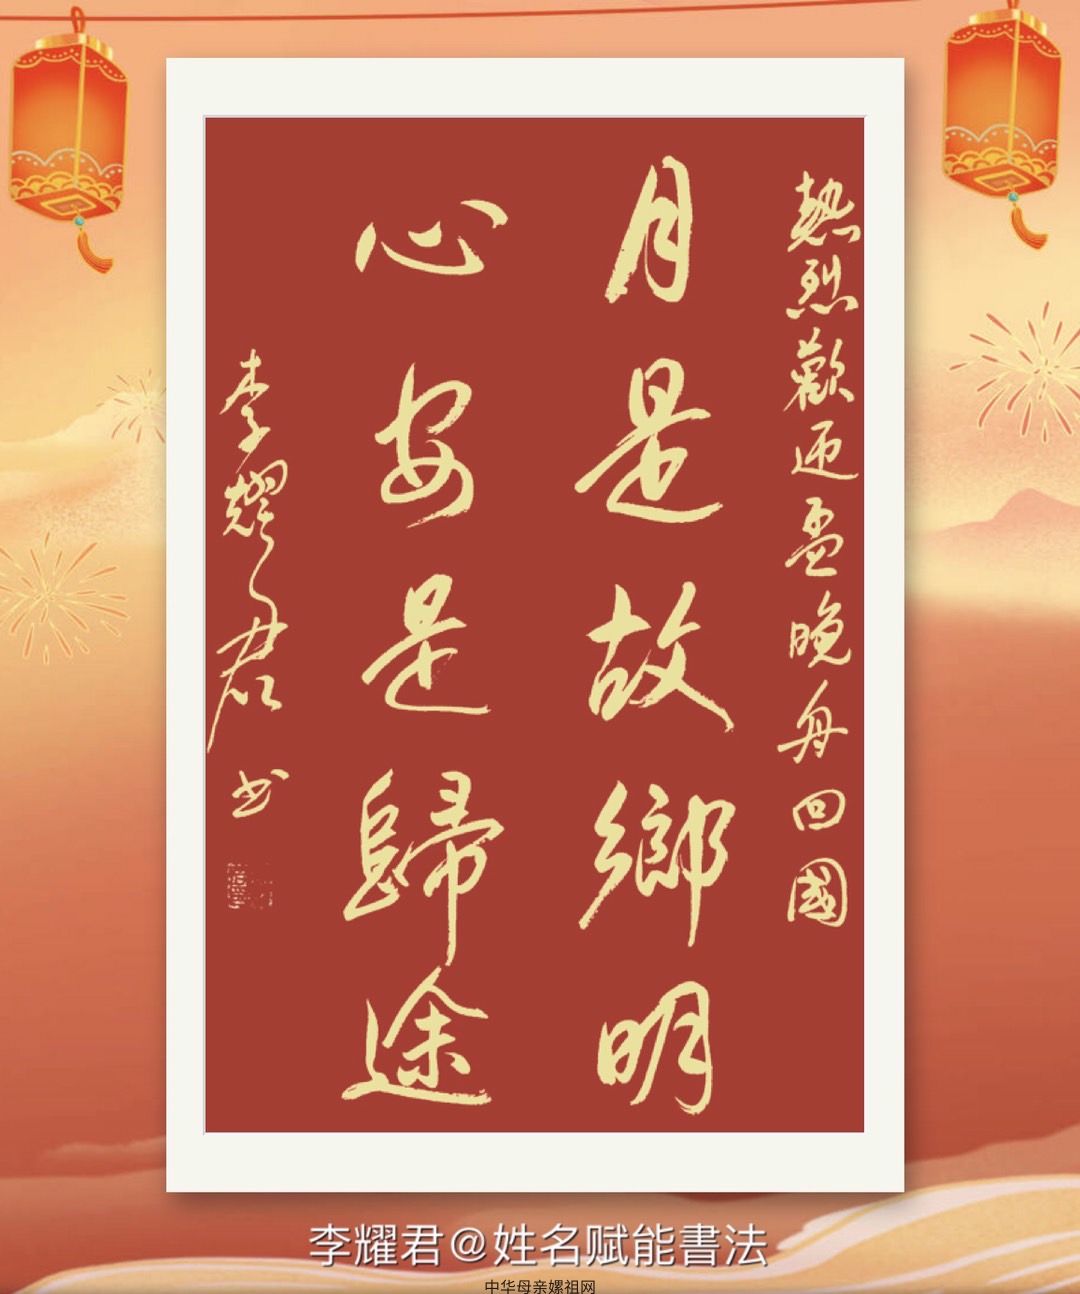 熱烈歡迎孟晚舟回國
月是故鄉明
心安是歸途
李耀君书
李耀君@姓名赋能書法
中华母亲嫘祖网